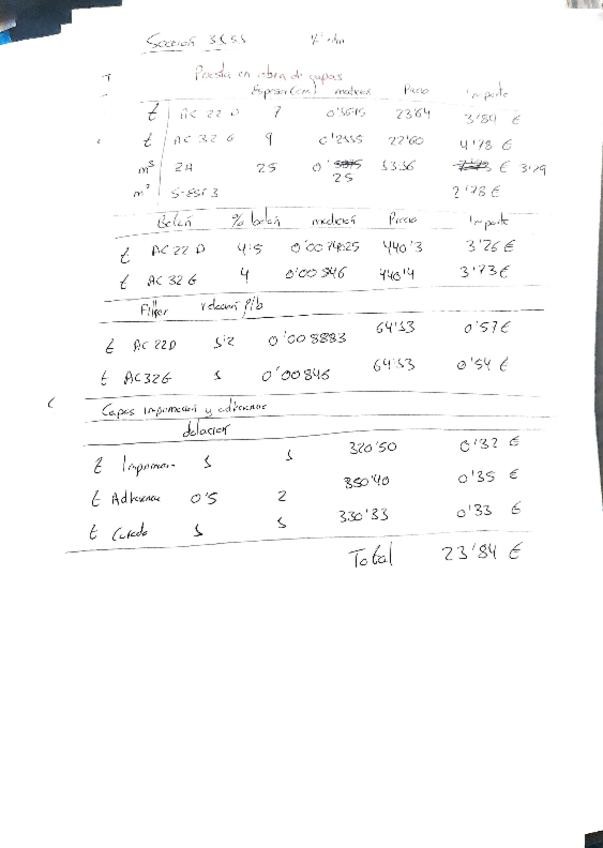 Sección 3151
Puesta en obra de capas
Espesor (cm) medición Precio Importe
t AC 22 D 7 0'1645 23'64 3'89 €
t AC 32 G 9 0'2115 22'60 4'78 €
m³ ZA 25 0'25 € 3'29
m² S-EST 3 2'78 €
Betún % betún medición Precio Importe
t AC 22 D 4'5 0'0074025 440'3 3'26 €
t AC 32 G 4 0'00846 440'4 3'73 €
Filler relación f/b
t AC 22D 1'2 0'008883 64'53 0'57 €
t AC32G 1 0'00846 64'53 0'54 €
Capas imprimación y adherencia
dotación
t 1 1 320'50 0'32 €
t Adherencia 0'5 2 350'40 0'35 €
t Curado 1 1 330'33 0'33 €
Total 23'84 €